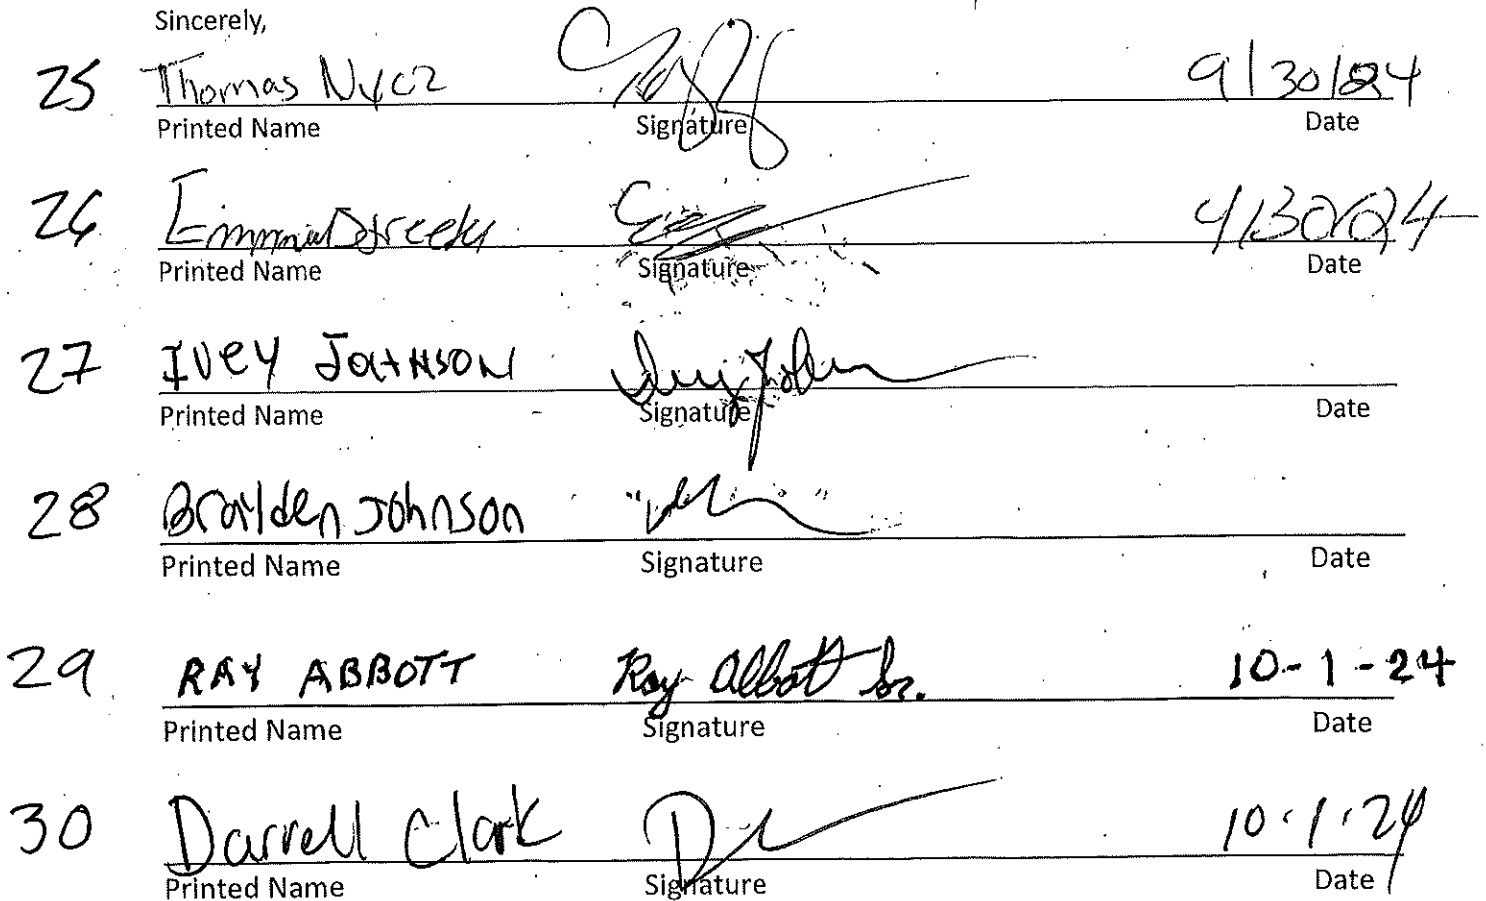 Sincerely,
25 Thomas Nycz 9/30/24
Printed Name Signature Date
26 Emma
Printed Name Signature Date
27 IVEY JOHNSON Ivey John
Printed Name Signature Date
28 Brayden Johnson
Printed Name Signature Date
29 RAY ABBOTT Ray Abbott Sr. 10-1-24
Printed Name Signature Date
30 Darrell Clark 10·1·24
Printed Name Signature Date